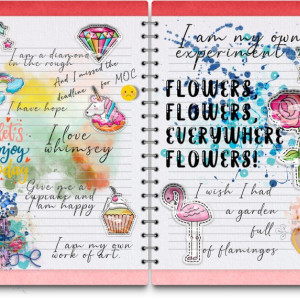 I am a diamond
in the rough
And I missed the
deadline for MOC
I have hope
let's
enjoy
today
I love
whimsey
Give me a
cupcake and I
am happy
I am my own
work of art.
I am my own
experiment
FLOWERS,
FLOWERS,
EVERYWHERE
FLOWERS!
I wish I had
a garden
full
of flamingos